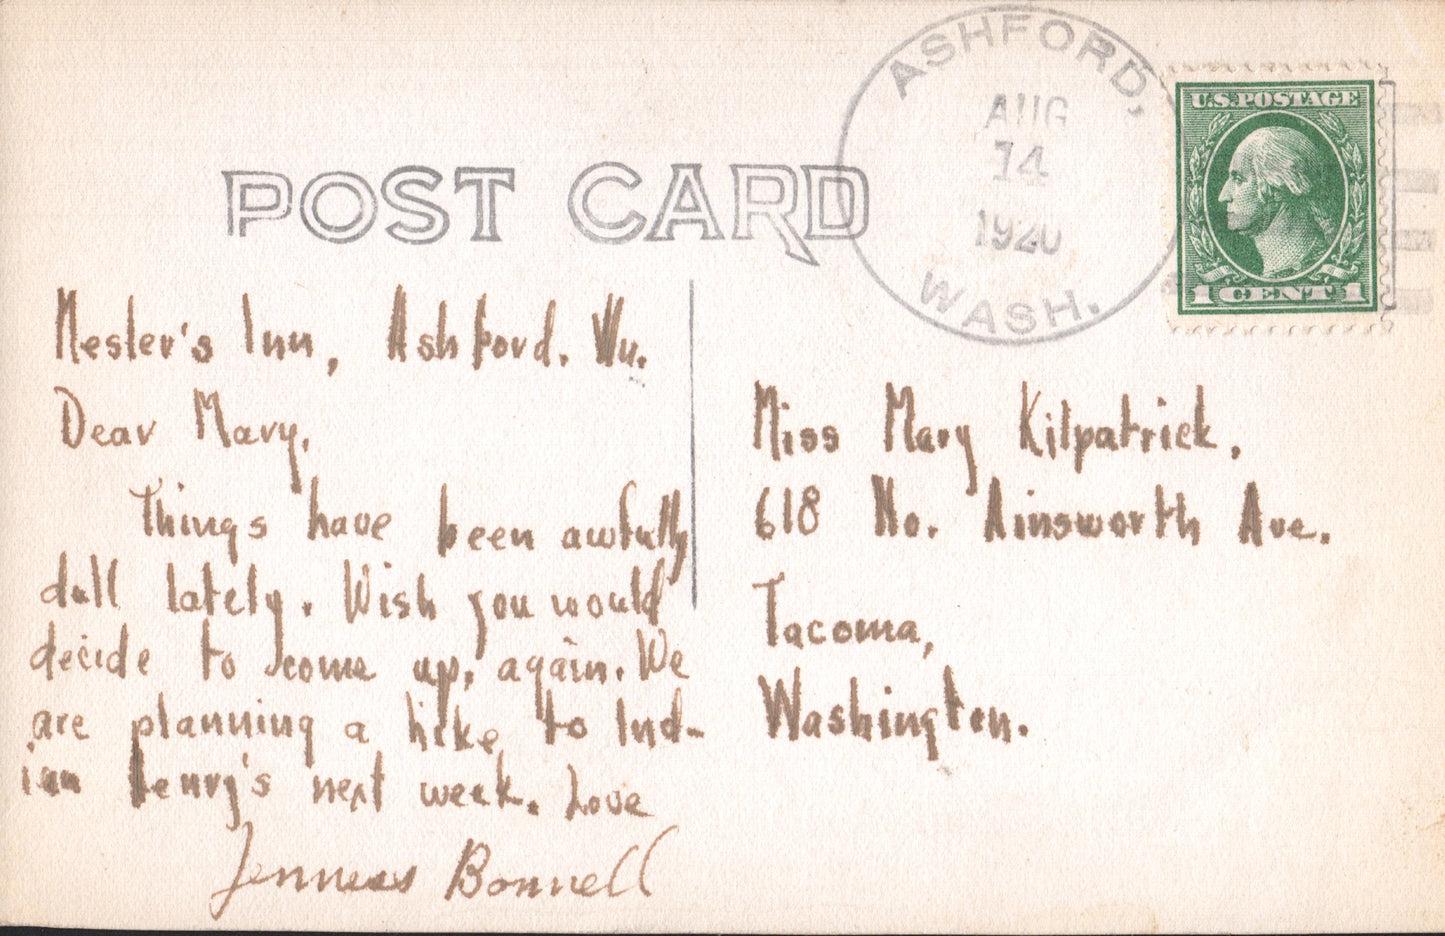 POST CARD
ASHFORD,
AUG
14
1920
WASH.
U.S. POSTAGE
1 CENT 1
Mesler's Inn, Ashford. Wn.
Dear Mary,
Things have been awfully
dull lately. Wish you would
decide to come up, again. We
are planning a hike to Ind-
ian Henry's next week. Love
Jenness Bonnell
Miss Mary Kilpatrick,
618 No. Ainsworth Ave.
Tacoma,
Washington.